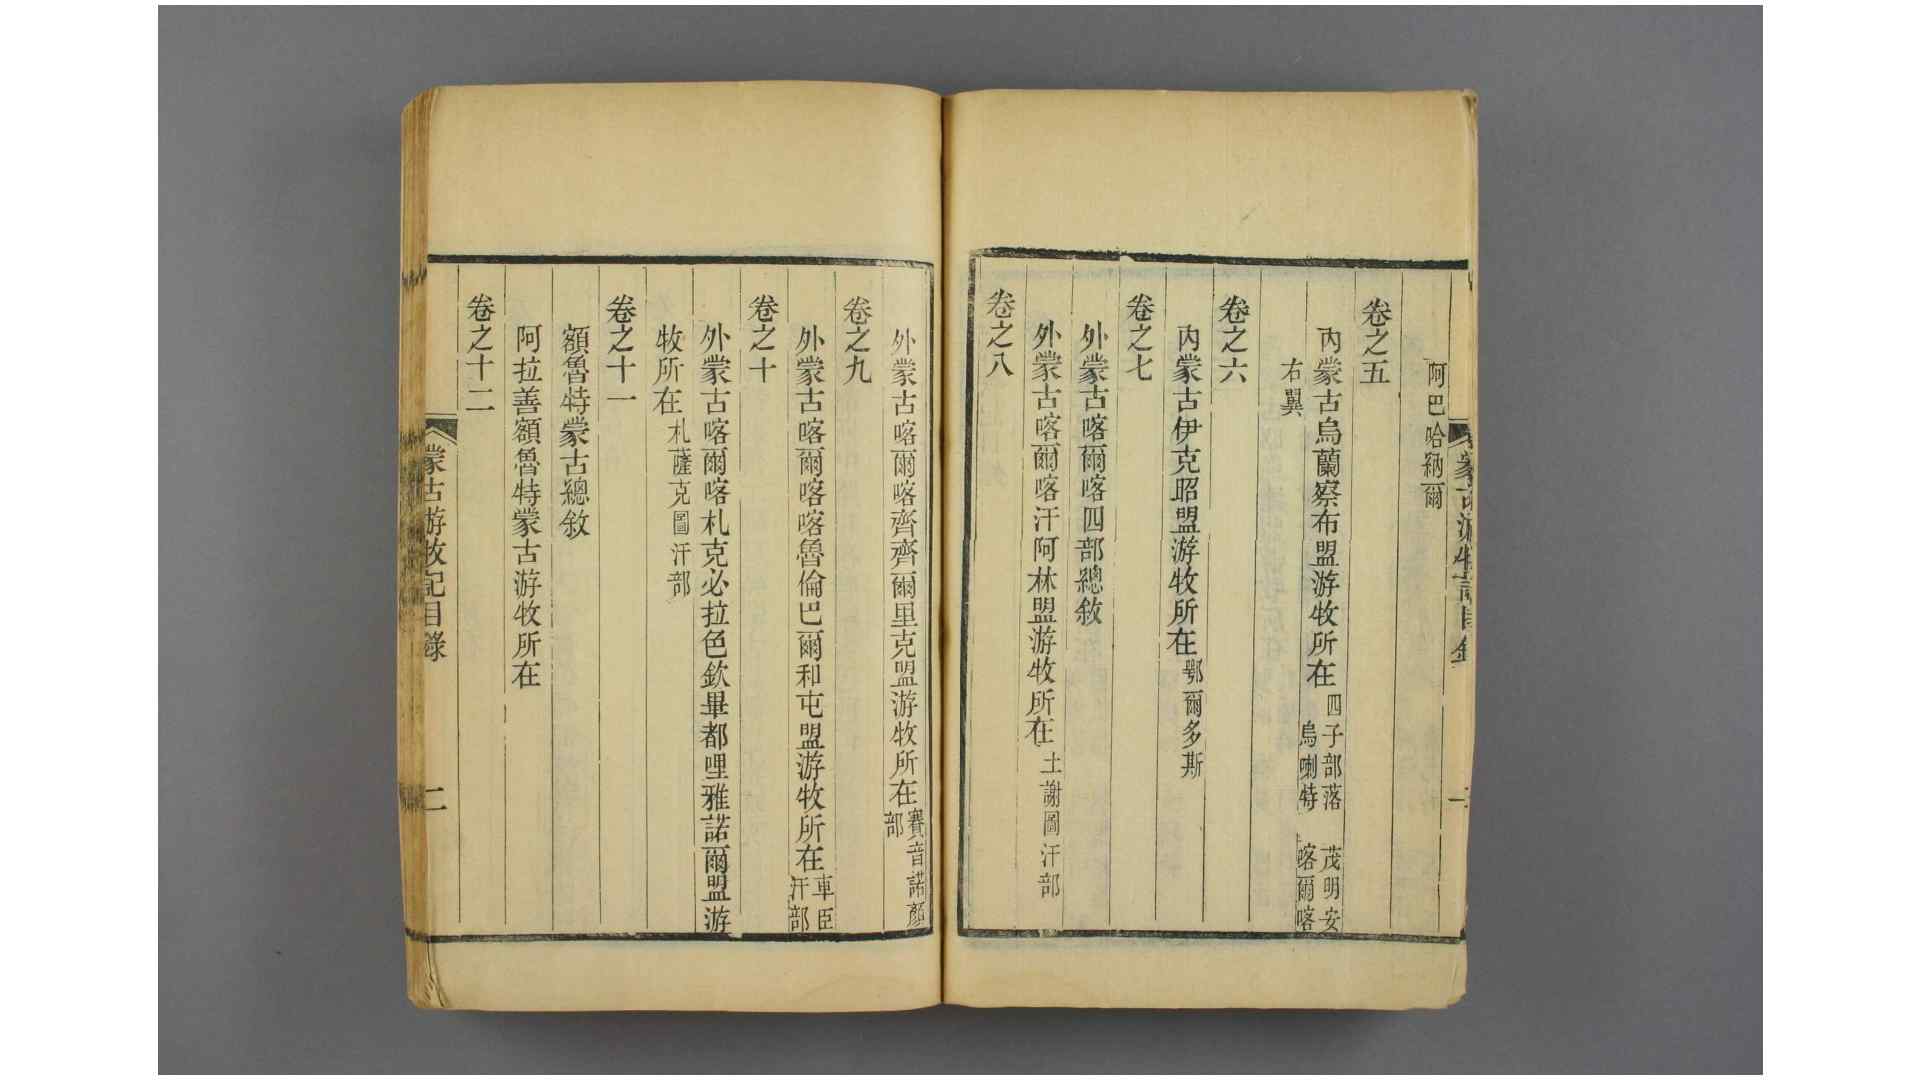 阿巴哈納爾
卷之五
內蒙古烏蘭察布盟游牧所在 四子部落 茂明安
烏喇特 喀爾喀
右翼
卷之六
內蒙古伊克昭盟游牧所在 鄂爾多斯
卷之七
外蒙古喀爾喀四部總敘
外蒙古喀爾喀汗阿林盟游牧所在 土謝圖汗部
卷之八
外蒙古喀爾喀齊齊爾里克盟游牧所在 賽音諾顏
部
卷之九
外蒙古喀爾喀喀魯倫巴爾和屯盟游牧所在 車臣
汗部
卷之十
外蒙古喀爾喀札克必拉色欽畢都哩雅諾爾盟游
牧所在 札薩克圖汗部
卷之十一
額魯特蒙古總敘
阿拉善額魯特蒙古游牧所在
卷之十二
蒙古游牧記目錄 二